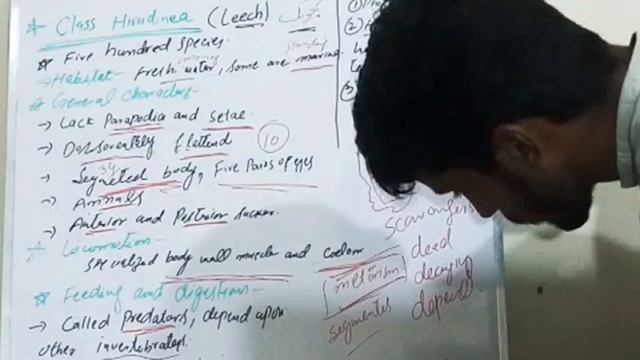 * Class Hirudinea (Leech)
* Five hundred species.
→ Habitat - Fresh water, some are marine.
* General characters -
→ Lack Parapodia and setae.
→ Dorsoventely flattend
10
34
→ Segmeted body, Five Pairs of eyes
→ Annuals
→ Anterior and Posterior sucker.
* Locomotion -
Specialized body wall muscle and coelom
* Feeding and digestion -
→ Called Predators, depend upon
other invertebrates.
Scavangers
dead
decaying
depend
segmentes
①
②
③